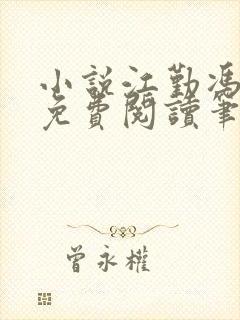 小說江勤馮
免費閱讀筆
曾永權